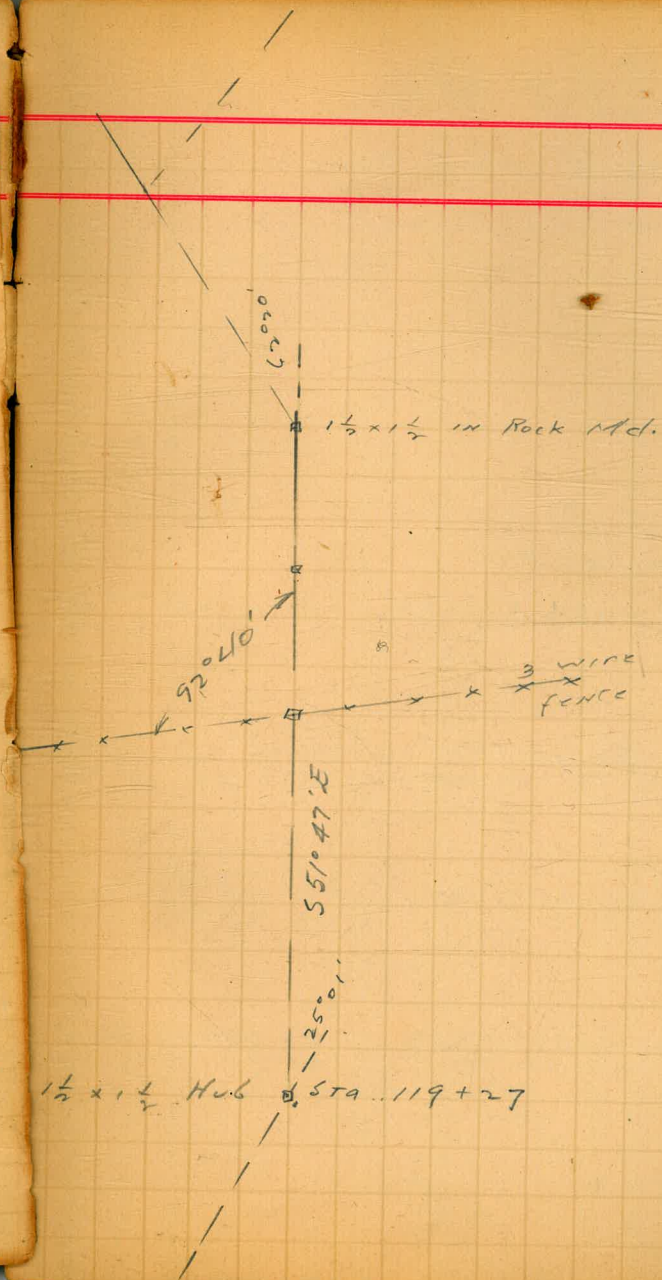 1½ x 1½ in Rock Md.
92°40'
3 wire
fence
S51°47'E
25°01'
1½ x 1½ Hub Sta. 119+27